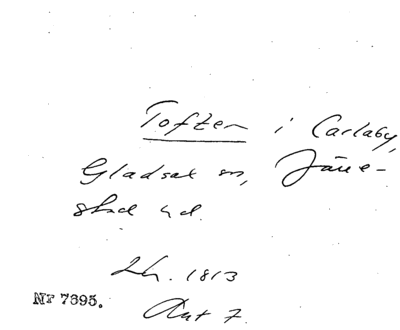 Toften i Carlaby,
Gladsax sn, Järre-
stad hd.
Lh. 1813
Akt 7.
Nr 7395.